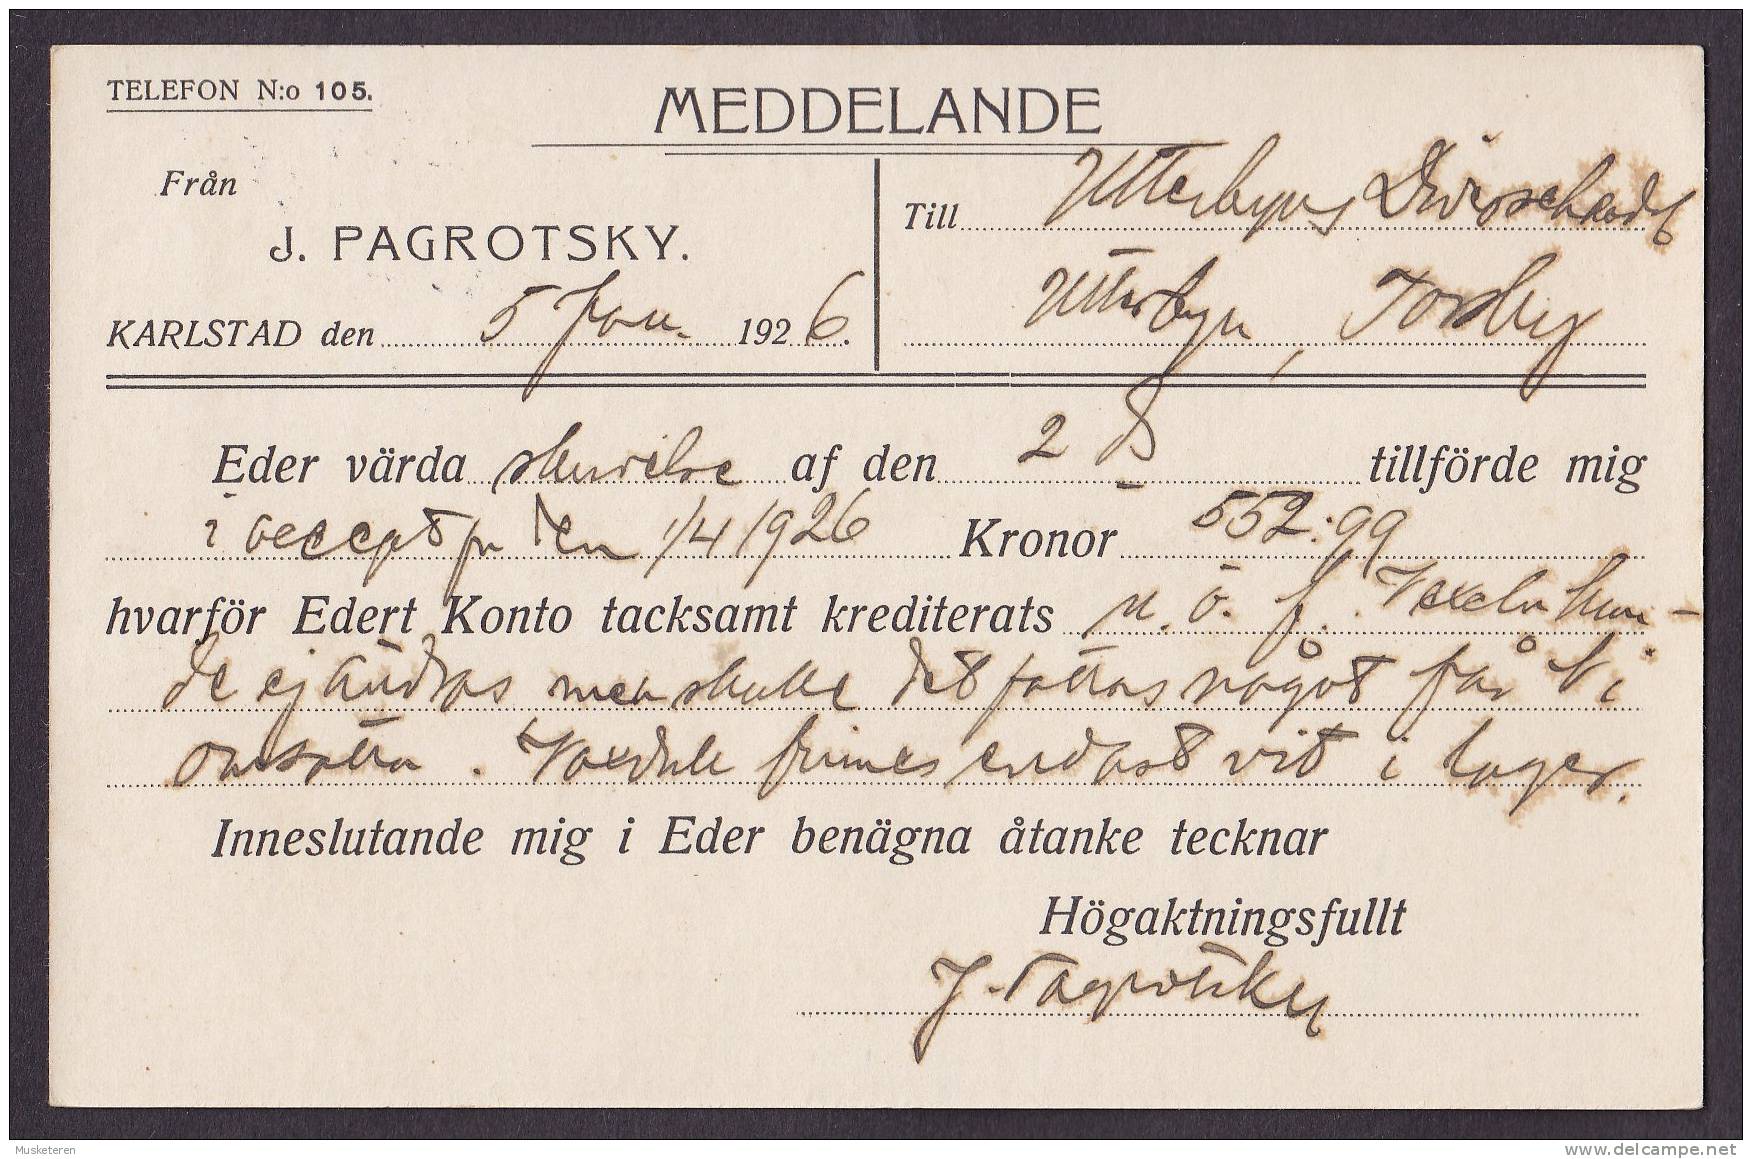 TELEFON N:o 105.
MEDDELANDE
Från
J. PAGROTSKY.
KARLSTAD den 5 Jan. 1926.
Till Utterbyns
Utterbyn, Torsby
Eder värda skrivelse af den 2 ds tillförde mig
i accept pr den 1/4 1926 Kronor 552:99
hvarför Edert Konto tacksamt krediterats u. ö. f. Vexeln kun-
de ej ändras men skulle det fattas något får Ni
omsätta. Vaxduk finnes endast vit i lager.
Inneslutande mig i Eder benägna åtanke tecknar
Högaktningsfullt
J. Pagrotsky
Musketeren
www.delcampe.net